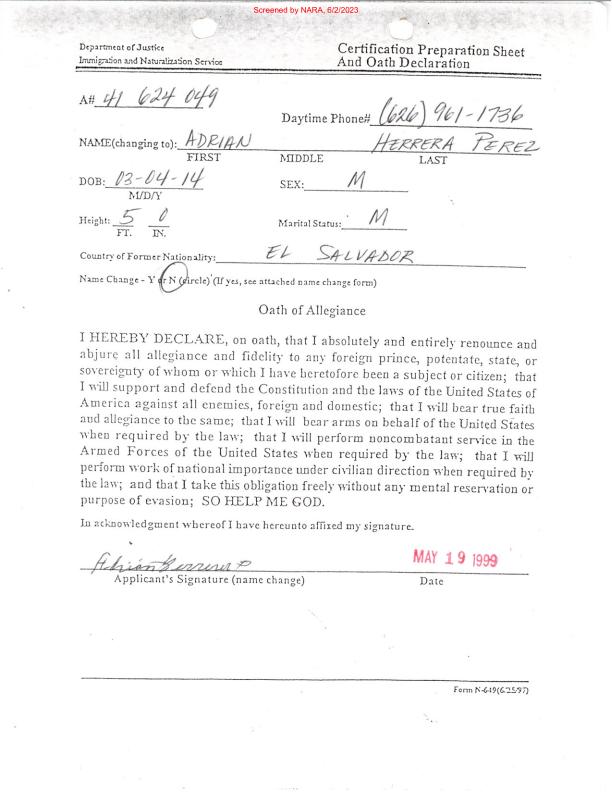 Screened by NARA, 6/2/2023
Department of Justice
Immigration and Naturalization Service
Certification Preparation Sheet
And Oath Declaration
A# 41 624 049
Daytime Phone# (626) 961-1736
NAME(changing to): ADRIAN HERRERA PEREZ
FIRST MIDDLE LAST
DOB: 03-04-14 SEX: M
M/D/Y
Height: 5 0 Marital Status: M
FT. IN.
Country of Former Nationality: EL SALVADOR
Name Change - Y or N (circle) (If yes, see attached name change form)
Oath of Allegiance
I HEREBY DECLARE, on oath, that I absolutely and entirely renounce and
abjure all allegiance and fidelity to any foreign prince, potentate, state, or
sovereignty of whom or which I have heretofore been a subject or citizen; that
I will support and defend the Constitution and the laws of the United States of
America against all enemies, foreign and domestic; that I will bear true faith
and allegiance to the same; that I will bear arms on behalf of the United States
when required by the law; that I will perform noncombatant service in the
Armed Forces of the United States when required by the law; that I will
perform work of national importance under civilian direction when required by
the law; and that I take this obligation freely without any mental reservation or
purpose of evasion; SO HELP ME GOD.
In acknowledgment whereof I have hereunto affixed my signature.
Adrian Herrera P MAY 19 1999
Applicant's Signature (name change) Date
Form N-649(6/25/97)